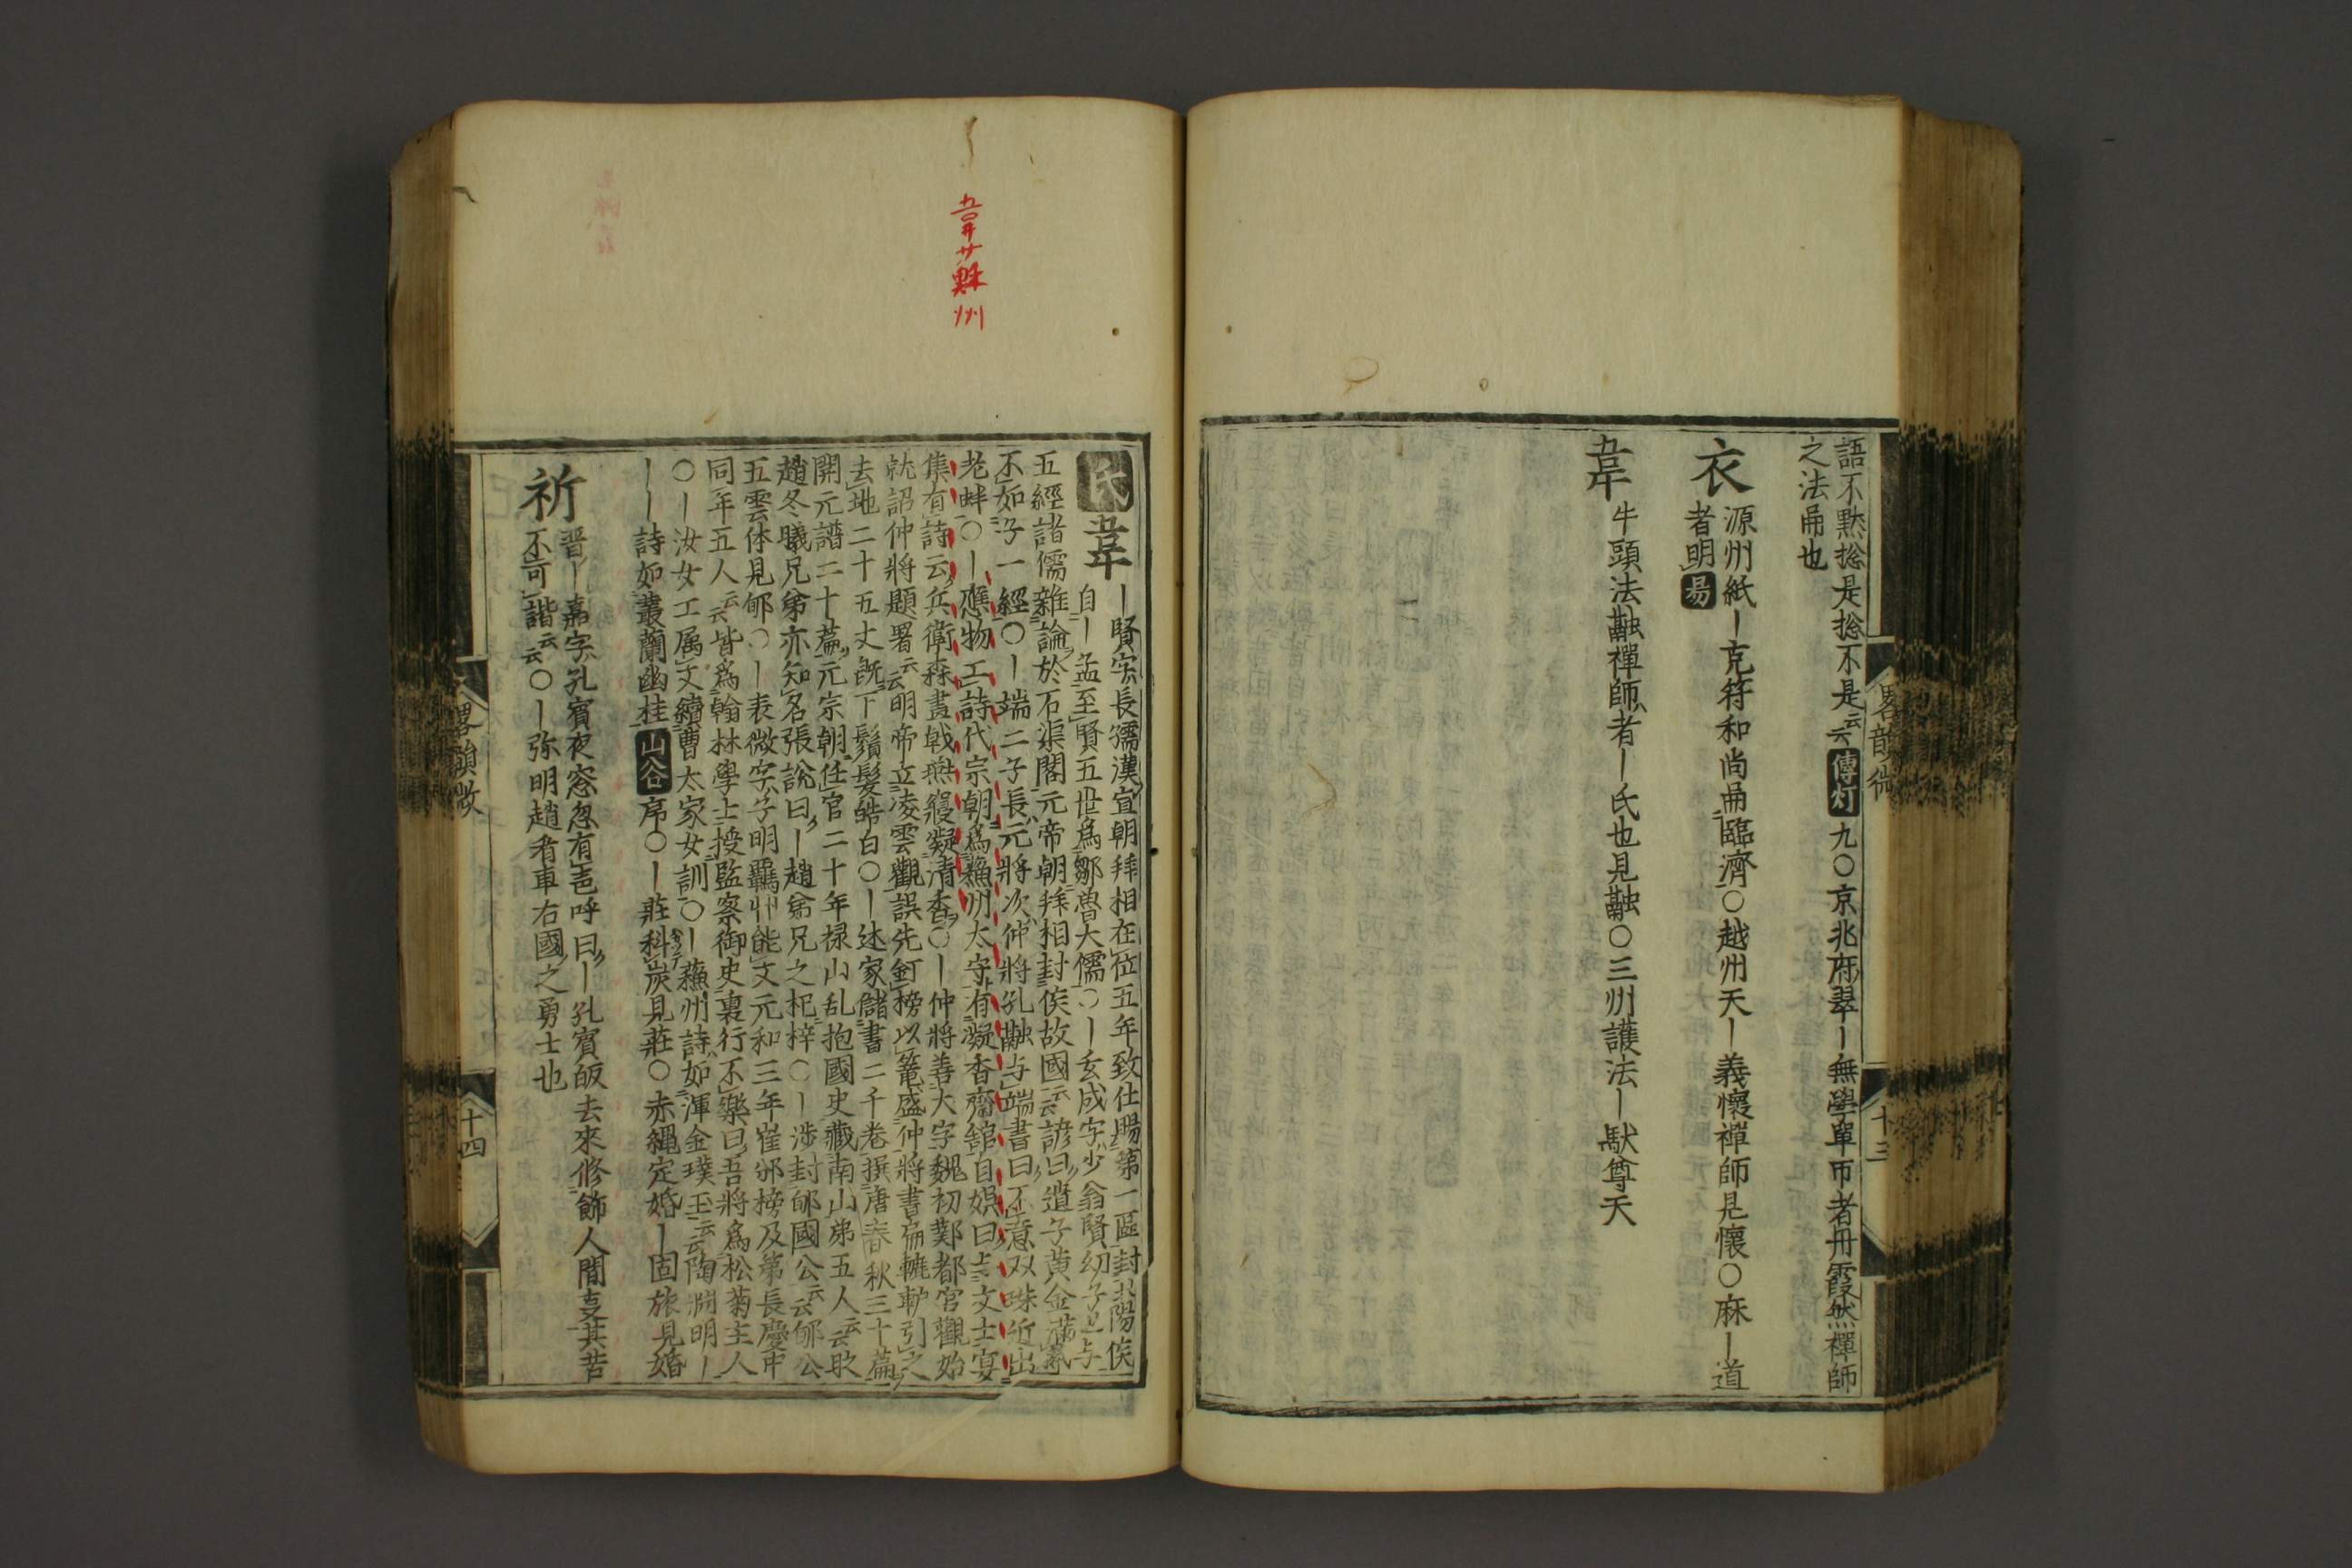 語不黙捴是捴不是云云傳灯九〇京兆府翠丨無學單帀者丹霞然禪師
之法嗣也
衣
源州紙丨克符和尚嗣臨濟〇越州天丨義懷禪師見懷〇麻丨道
者明昜
韋
牛頭法融禪師者丨氏也見融〇三州護法丨馱尊天
畧韻微
十三
韋蘓州
氏韋
丨賢字長孺漢宣朝拜相在位五年致仕賜第一區封扶陽侯
自丨孟至賢五世爲鄒魯大儒〇丨玄成字少翁賢幼子也与
五經諸儒雜論於石渠閣元帝朝拜相封侯故國云云諺曰遺子黄金滿籯
不如子一經〇丨端二子長元將次仲將孔融与端書曰不意双珠近出
老蚌〇丨應物工詩代宗朝爲蘓州太守有凝香齋舘自娯曰与文士宴
集有詩云兵衛森畫戟燕寢凝清香〇丨仲將善大字魏初鄴都宮觀始
就詔仲將題署云云明帝立凌雲觀誤先釘榜以篭盛仲將書扁轆轤引之
去地二十五丈既下鬚髮皓白〇丨述家儲書二千卷撰唐春秋三十篇
開元譜二十篇元宗朝任官二十年禄山乱抱國史藏南山弟五人云云
趙冬曦兄弟亦知名張說曰丨趙弟兄之杞梓〇丨渉封郇國公云云郇公
五雲体見郇〇丨表微字子明羈丱能文元和三年崔邠榜及第長慶中
同年五人云云皆爲翰林學士授監察御史裏行不樂曰吾將爲松菊主人
〇丨汝女工属文續曹太家女訓〇丨蘓州詩如渾金璞玉云云陶淵明丨
丨丨詩如叢蘭幽桂山谷序〇丨莊科炭見莊〇赤繩定婚丨固旅見婚
祈
晋丨嘉字孔賓夜窓忽有声呼曰丨孔賓皈去來修飾人間支其苦
不可諧云云〇丨弥明趙看車右國之勇士也
畧韻微
十四